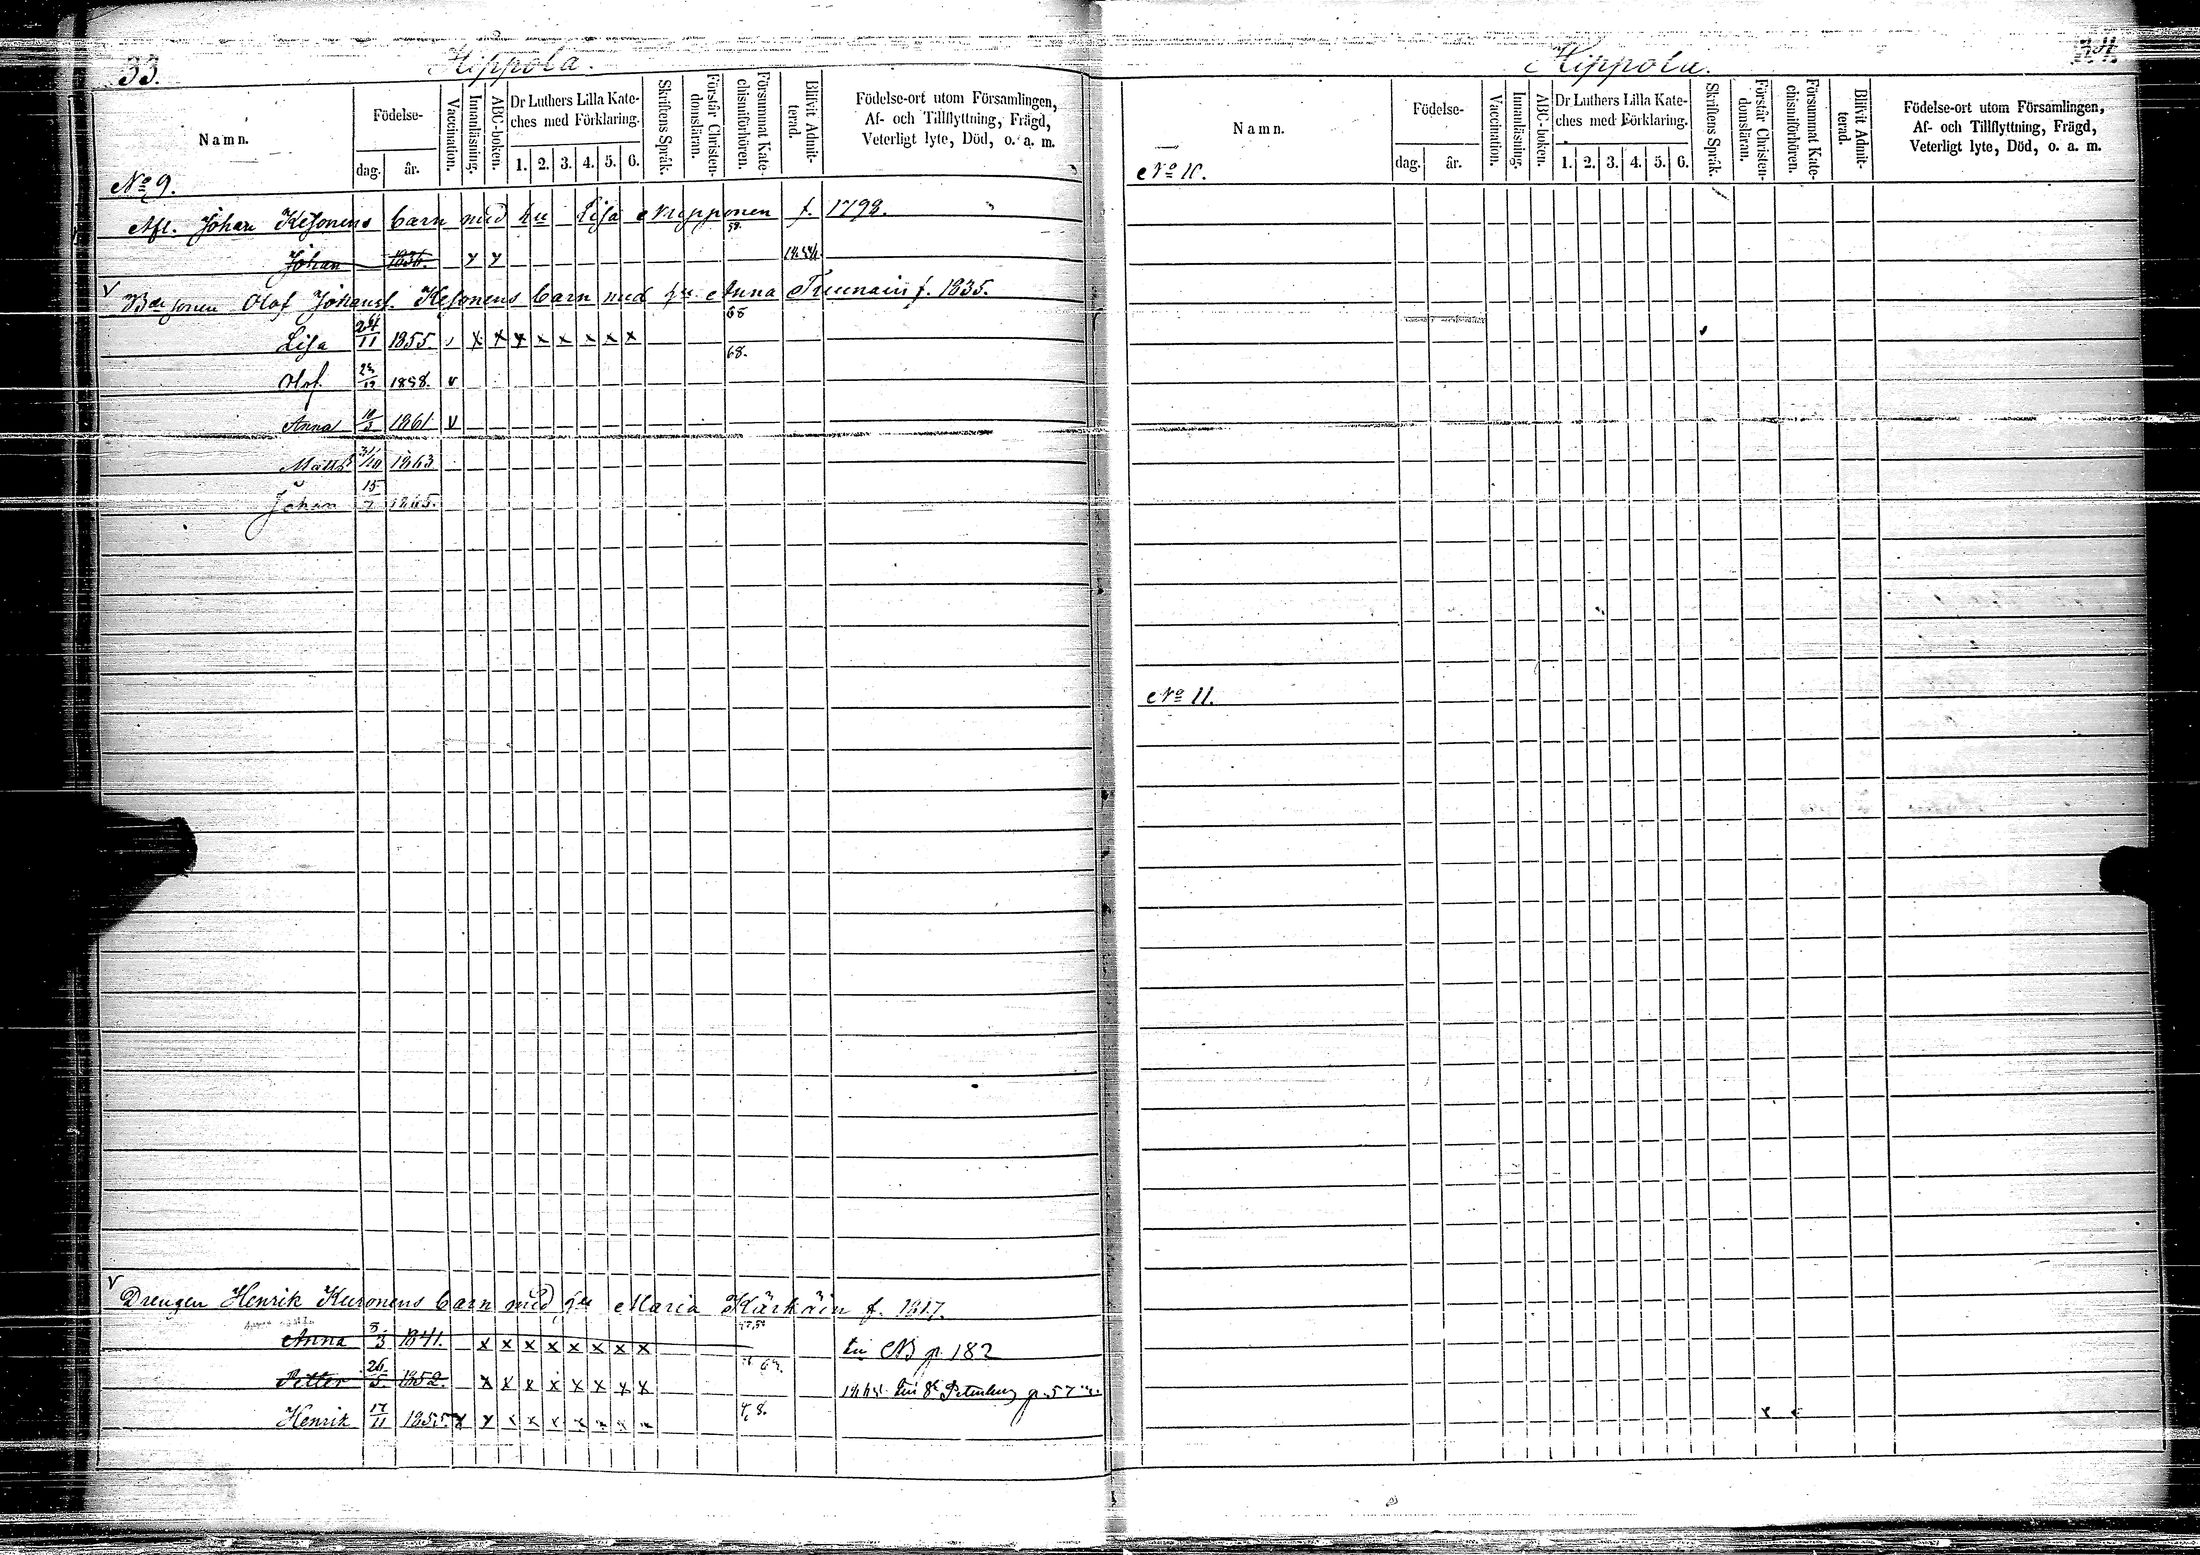 33.
Hippola.
Namn.
Födelse-
dag.
år.
Vaccination.
Innanläsning.
ABC-boken.
Dr Luthers Lilla Kate-
ches med Förklaring.
1. 2. 3. 4. 5. 6.
Skriftens Språk.
Förstår Christen-
domsläran.
Försummat Kate-
chismiförhören.
Blifvit Admit-
terad.
Födelse-ort utom Församlingen,
Af- och Tillflyttning, Frägd,
Veterligt lyte, Död, o. a. m.
No 9.
Afl. Johan Kesonens barn med hu Lisa Nupponen f. 1798.
Johan 1836. x x
V
Bde sonen Olof Johanss. Kesonens barn med hu Anna f. 1835.
68
Lisa 24/11 1855 x x x x x x x x
68.
Olof 1858. v
Anna 1861 v
Matts 31/10 1863
Johan 15/7 1865.
V
Drengen Henrik Kuronens barn med hu Maria Kärhäin f. 1817.
Anna 3/3 1841. x x x x x x x x till NB p. 182
Petter 26/5 1852. x x x x x x x x till St Petersburg p. 57
Henrik 17/11 1855. x x x x x x x x x
Hippola.
34.
Namn.
Födelse-
dag.
år.
Vaccination.
Innanläsning.
ABC-boken.
Dr Luthers Lilla Kate-
ches med Förklaring.
1. 2. 3. 4. 5. 6.
Skriftens Språk.
Förstår Christen-
domsläran.
Försummat Kate-
chismiförhören.
Blifvit Admit-
terad.
Födelse-ort utom Församlingen,
Af- och Tillflyttning, Frägd,
Veterligt lyte, Död, o. a. m.
No 10.
No 11.